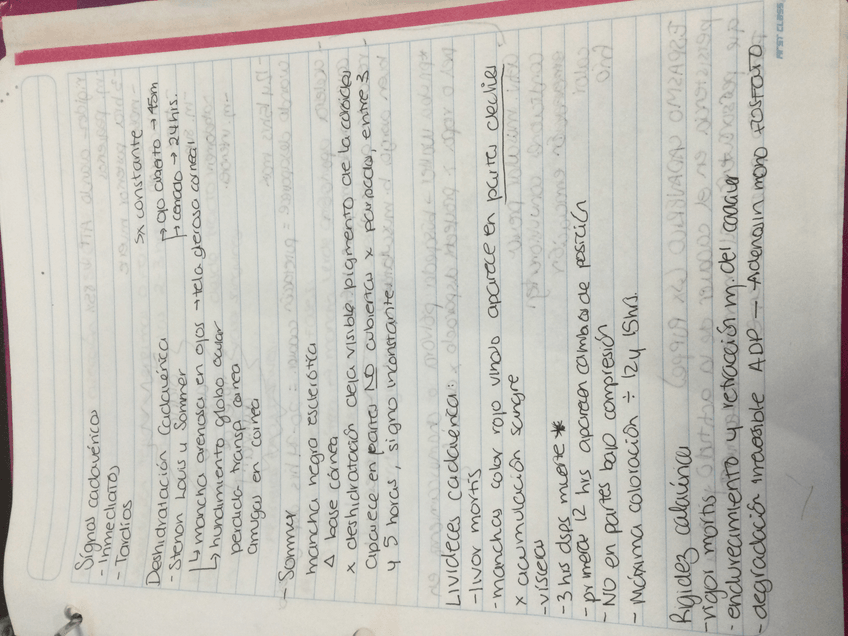 Signos cadavéricos
- Inmediatos
- Tardios
Deshidratación Cadavérica
sx constante
- Stenon Louis y Sommer
→ ojo abierto → 45m
→ cerrado → 24 hrs.
↳ mancha arenosa en ojos → tela glerosa corneal
↳ hundimiento globo ocular
perdida transp. cornea
arrugas en cornea
- Sommer
mancha negra esclerótica
Δ base córnea
x deshidratación deja visible pigmento de la coroides
aparece en partes NO cubiertas x parpados, entre 3
y 5 horas, signo inconstante
Livideces cadavericas:
- livor mortis
- manchas color rojo vinoso aparece en partes declives
x acumulación sangre
- viseras
- 3 hrs dsps muerte *
- primeras 12 hrs aparecen cambios de posición
- NO en partes bajo compresión
- Máxima coloración ÷ 12 y 15 hrs.
Rigidez cadavérica
- rigor mortis
- endurecimiento y retracción m. del cadaver
- degradación irreversible ADP - Adenosin mono fosfato
FIRST CLASS